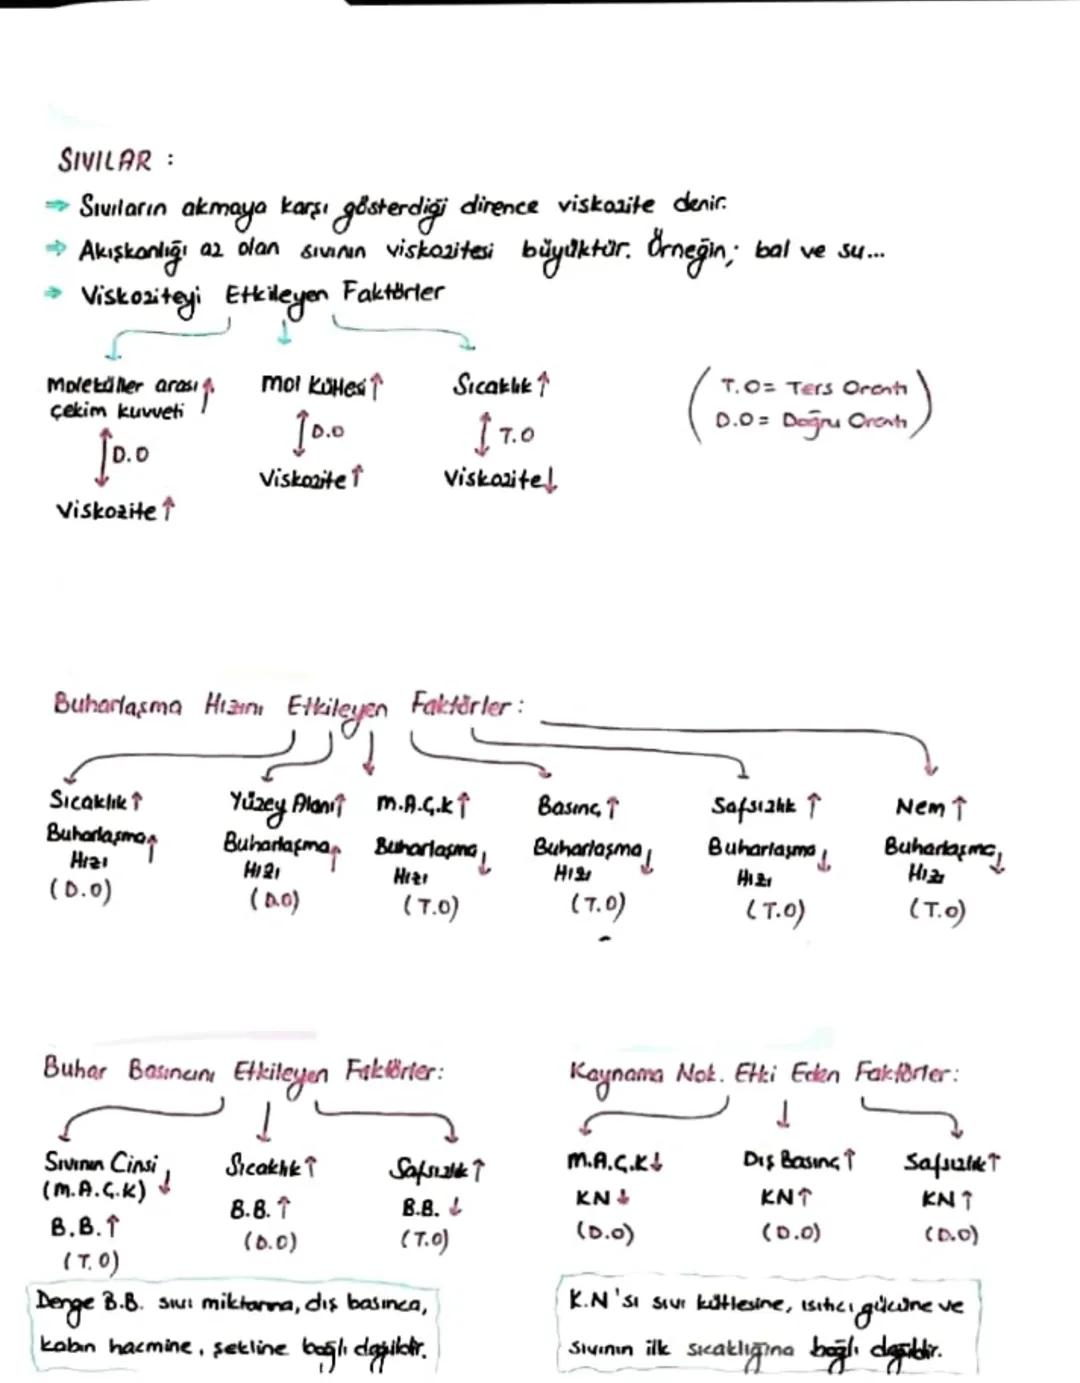 SIVILAR :
⇒ Sıvıların akmaya karşı gösterdiği dirence viskozite denir.
⇒ Akışkanlığı az olan sıvının viskozitesi büyüktür. Örneğin; bal ve su...
⇒ Viskoziteyi Etkileyen Faktörler
Moleküller arası ↑
çekim kuvveti
↕ D.O
Viskozite ↑
Mol Kütlesi ↑
↕ D.O
Viskozite ↑
Sıcaklık ↑
↕ T.O
Viskozite ↓
(T.O = Ters Orantı
D.O = Doğru Orantı)
Buharlaşma Hızını Etkileyen Faktörler :
Sıcaklık ↑
Buharlaşma ↑
Hızı
(D.O)
Yüzey Alanı ↑
Buharlaşma ↑
Hızı
(D.O)
M.A.Ç.K ↑
Buharlaşma ↓
Hızı
(T.O)
Basınç ↑
Buharlaşma ↓
Hızı
(T.O)
Safsızlık ↑
Buharlaşma ↓
Hızı
(T.O)
Nem ↑
Buharlaşma ↓
Hızı
(T.O)
Buhar Basıncını Etkileyen Faktörler:
Sıvının Cinsi
(M.A.Ç.K) ↓
B.B. ↑
(T.O)
Sıcaklık ↑
B.B. ↑
(D.O)
Safsızlık ↑
B.B. ↓
(T.O)
Denge B.B. sıvı miktarına, dış basınca,
kabın hacmine, şekline bağlı değildir.
Kaynama Nok. Etki Eden Faktörler:
M.A.Ç.K ↓
KN ↓
(D.O)
Dış Basınç ↑
KN ↑
(D.O)
Safsızlık ↑
KN ↑
(D.O)
K.N'sı sıvı kütlesine, ısıtıcı gücüne ve
sıvının ilk sıcaklığına bağlı değildir.